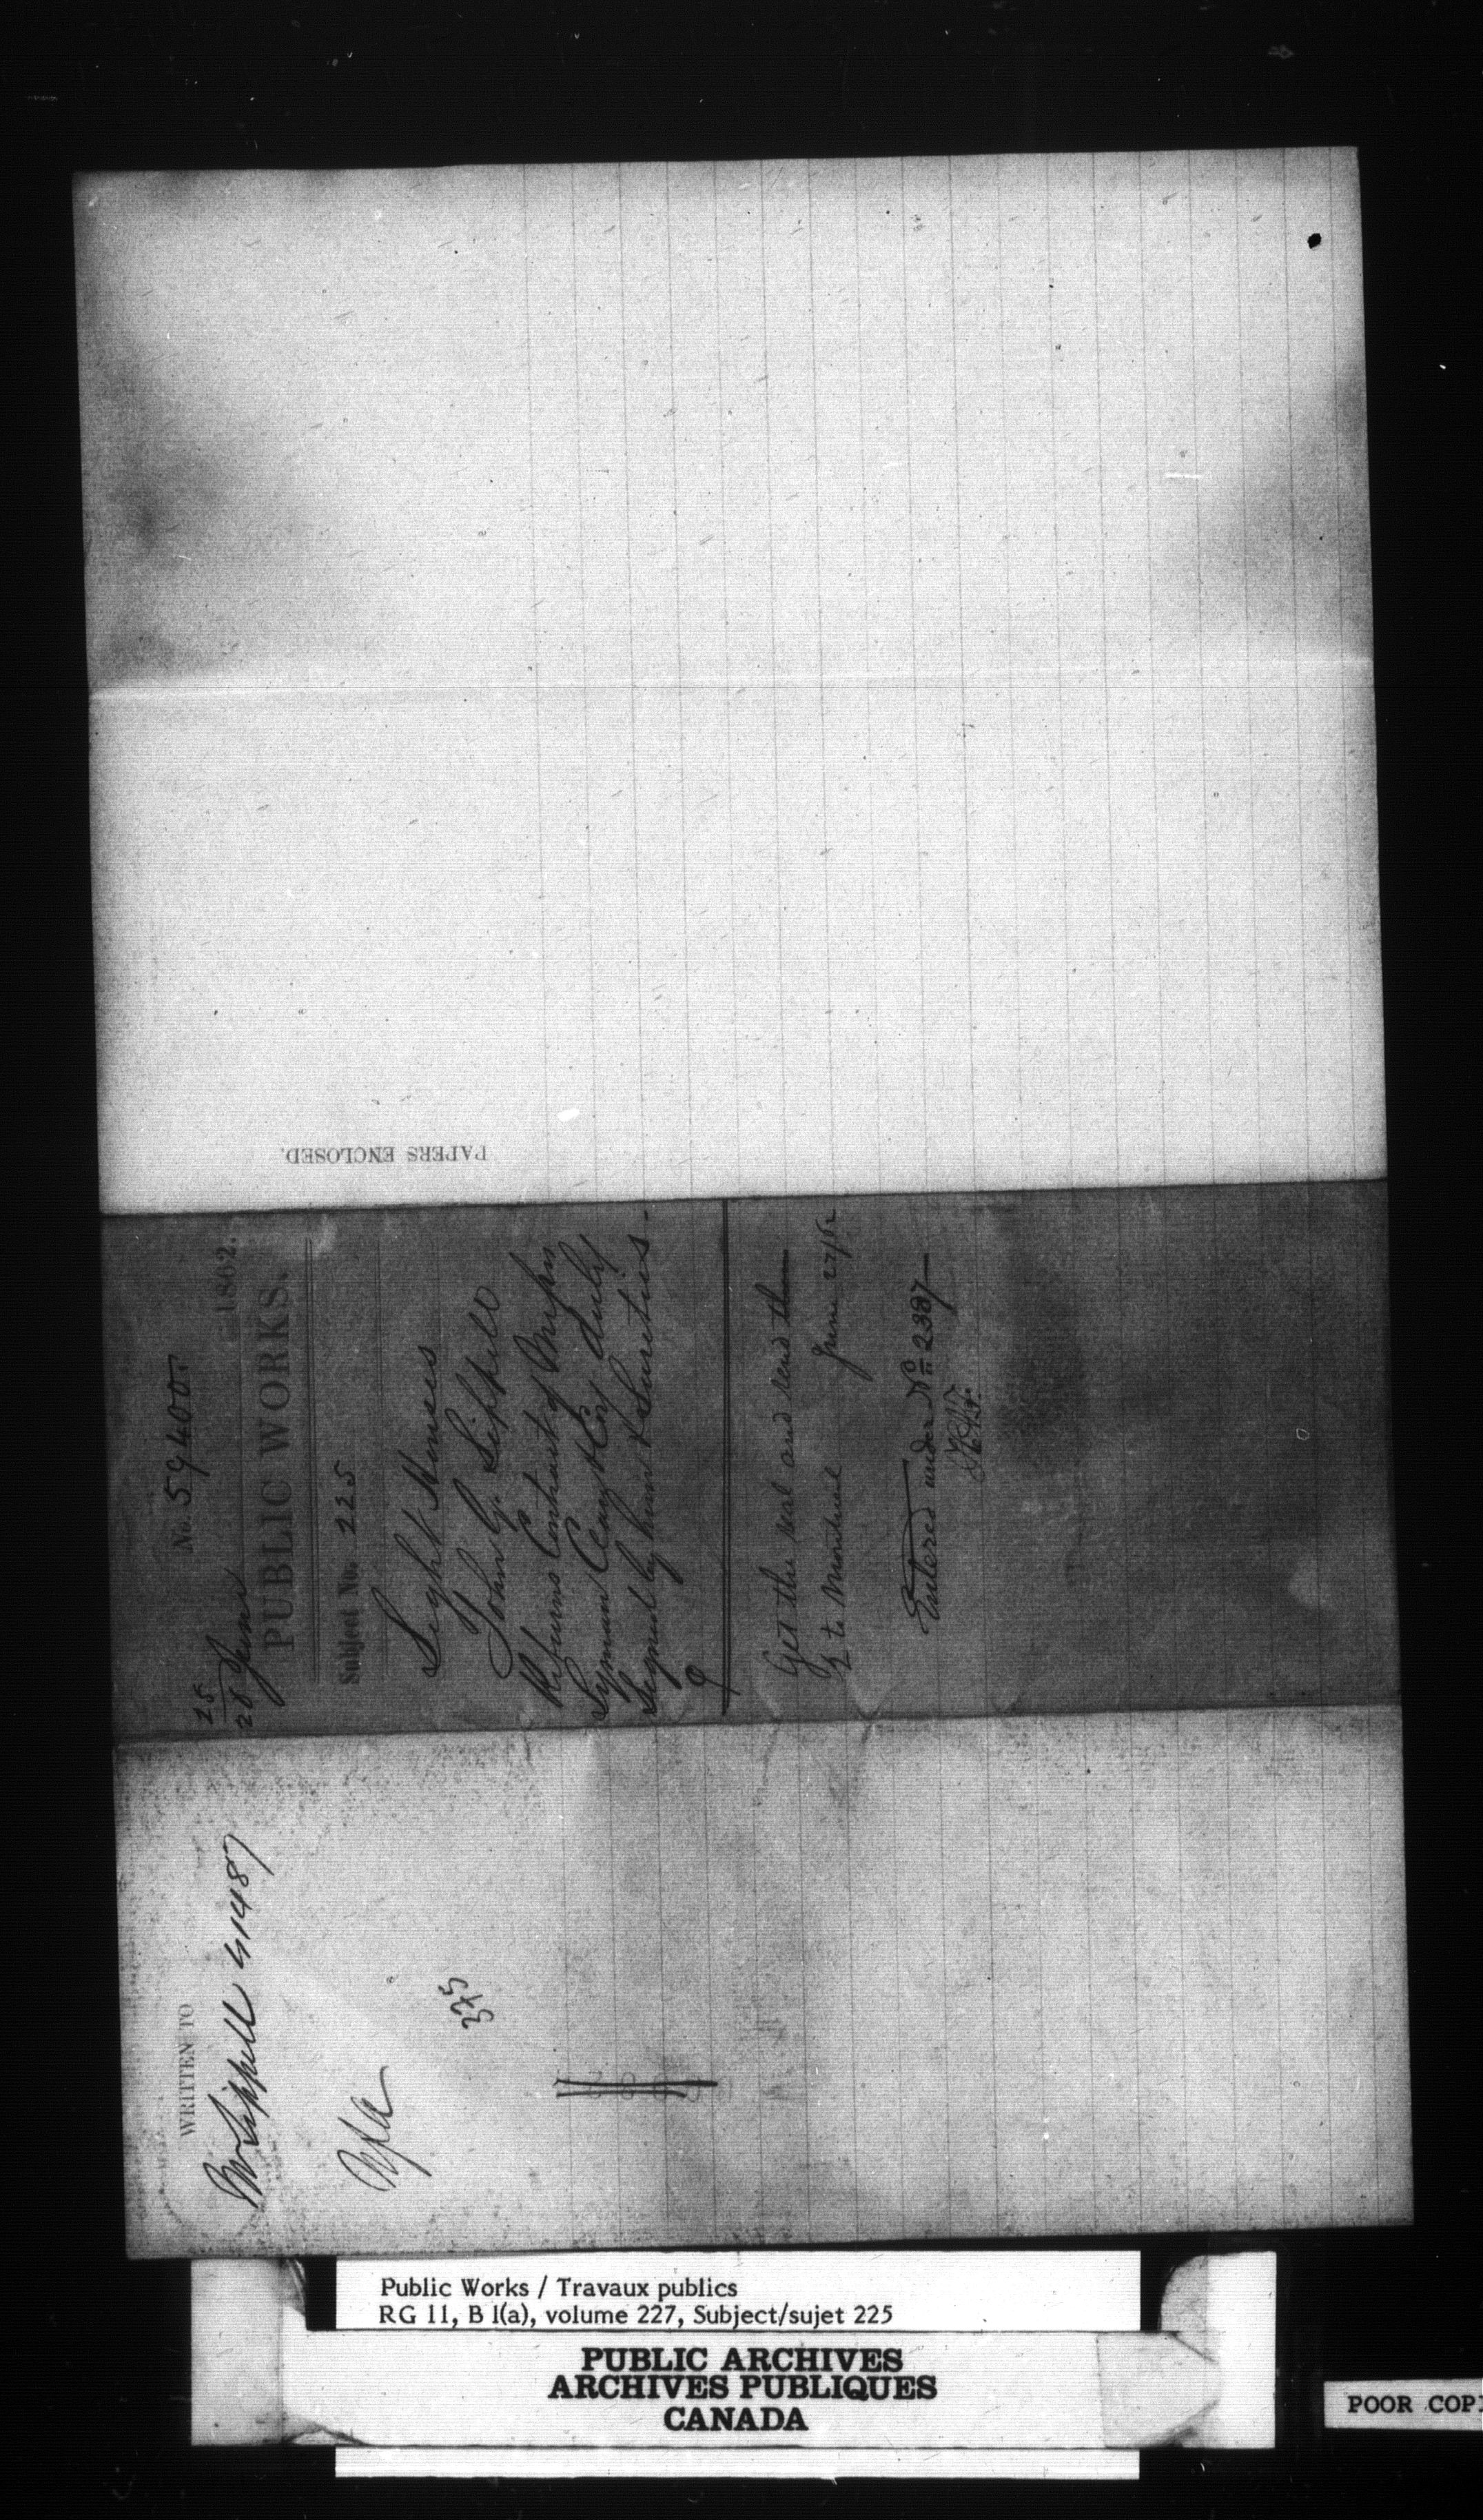 PAPERS ENCLOSED.
No. 59400
25
26 June 1862.
PUBLIC WORKS.
Subject No. 225
Light Houses
John G. Sippell
Returns Contract of Messrs
Lyman Clay & Coy duly
Signed by him & Sureties.
Get the seal and send them
to Montreal June 27/62
Entered under No 2387
WRITTEN TO
Mr Sippell 41487
325
Public Works / Travaux publics
RG 11, B 1(a), volume 227, Subject/sujet 225
PUBLIC ARCHIVES
ARCHIVES PUBLIQUES
CANADA
POOR COPI